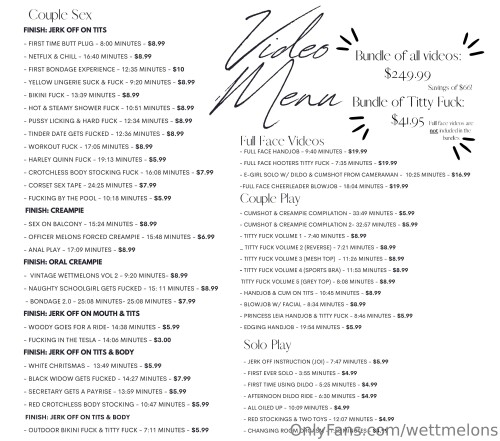 Couple Sex
FINISH: JERK OFF ON TITS
- FIRST TIME BUTT PLUG - 8:00 MINUTES - $8.99
- NETFLIX & CHILL - 16:40 MINUTES - $8.99
- FIRST BONDAGE EXPERIENCE - 12:35 MINUTES - $10
- YELLOW LINGERIE SUCK & FUCK - 9:20 MINUTES - $8.99
- BIKINI FUCK - 13:39 MINUTES - $8.99
- HOT & STEAMY SHOWER FUCK - 10:51 MINUTES - $8.99
- PUSSY LICKING & HARD FUCK - 12:34 MINUTES - $8.99
- TINDER DATE GETS FUCKED - 12:36 MINUTES - $8.99
- WORKOUT FUCK - 17:05 MINUTES - $8.99
- HARLEY QUINN FUCK - 19:13 MINUTES - $5.99
- CROTCHLESS BODY STOCKING FUCK - 16:08 MINUTES - $7.99
- CORSET SEX TAPE - 24:25 MINUTES - $7.99
- FUCKING BY THE POOL - 10:18 MINUTES - $5.99
FINISH: CREAMPIE
- SEX ON BALCONY - 15:24 MINUTES - $8.99
- OFFICER MELONS FORCED CREAMPIE - 15:48 MINUTES - $6.99
- ANAL PLAY - 17:09 MINUTES - $8.99
FINISH: ORAL CREAMPIE
- VINTAGE WETTMELONS VOL 2 - 9:20 MINUTES- $8.99
- NAUGHTY SCHOOLGIRL GETS FUCKED - 15: 11 MINUTES - $8.99
- BONDAGE 2.0 - 25:08 MINUTES- 25:08 MINUTES - $7.99
FINISH: JERK OFF ON MOUTH & TITS
- WOODY GOES FOR A RIDE- 14:38 MINUTES - $5.99
- FUCKING IN THE TESSA - 14:06 MINUTES - $3.00
FINISH: JERK OFF ON TITS & BODY
- WHITE CHRITSMAS - 13:49 MINUTES - $5.99
- BLACK WIDOW GETS FUCKED - 14:27 MINUTES - $7.99
- SECRETARY GETS A PAYRISE - 13:59 MINUTES - $5.99
- RED CROTCHLESS BODY STOCKING - 10:47 MINUTES - $5.99
FINISH: JERK OFF ON TITS & BODY
- OUTDOOR BIKINI FUCK & TITTY FUCK - 7:11 MINUTES - $5.99
Video
Menu
Bundle of all videos:
$249.99
Savings of $66!
Bundle of Titty Fuck:
$41.95
Full face videos are
not included in the
bundles
Full Face Videos
- FULL FACE HANDJOB - 9:40 MINUTES - $19.99
- FULL FACE HOOTERS TITTY FUCK - 7:35 MINUTES - $19.99
- E-GIRL SOLO W/ DILDO & CUMSHOT FROM CAMERAMAN - 10:25 MINUTES - $16.99
-FULL FACE CHEERLEADER BLOWJOB - 18:04 MINUTES - $19.99
Couple Play
- CUMSHOT & CREAMPIE COMPILATION - 33:49 MINUTES - $5.99
- CUMSHOT & CREAMPIE COMPILATION 2- 32:57 MINUTES - $5.99
- TITTY FUCK VOLUME 1 - 7:40 MINUTES - $8.99
_ TITTY FUCK VOLUME 2 (REVERSE) - 7:21 MINUTES - $8.99
- TITTY FUCK VOLUME 3 (MESH TOP) - 11:26 MINUTES - $8.99
- TITTY FUCK VOLUME 4 (SPORTS BRA) - 11:53 MINUTES - $8.99
TITTY FUCK VOLUME 5 (GREY TOP) - 8:08 MINUTES - $8.99
- HANDJOB & CUM ON TITS - 10:45 MINUTES - $8.99
- BLOWJOB W/ FACIAL - 8:34 MINUTES - $8.99
- PRINCESS LEIA HANDJOB & TITTY FUCK - 8:46 MINUTES - $5.99
- EDGING HANDJOB - 19:54 MINUTES - $5.99
Solo Play
- JERK OFF INSTRUCTION (JOI) - 7:47 MINUTES - $5.99
- FIRST EVER SOLO - 3:55 MINUTES - $4.99
- FIRST TIME USING DILDO - 5:25 MINUTES - $4.99
- AFTERNOON DILDO RIDE - 6:30 MINUTES - $4.99
- ALL OILED UP - 10:09 MINUTES - $4.99
- RED STOCKINGS & TWO TOYS - 12:07 MINUTES - $4.99
- CHANGING ROOM
OnlyFans.com/wettmelons